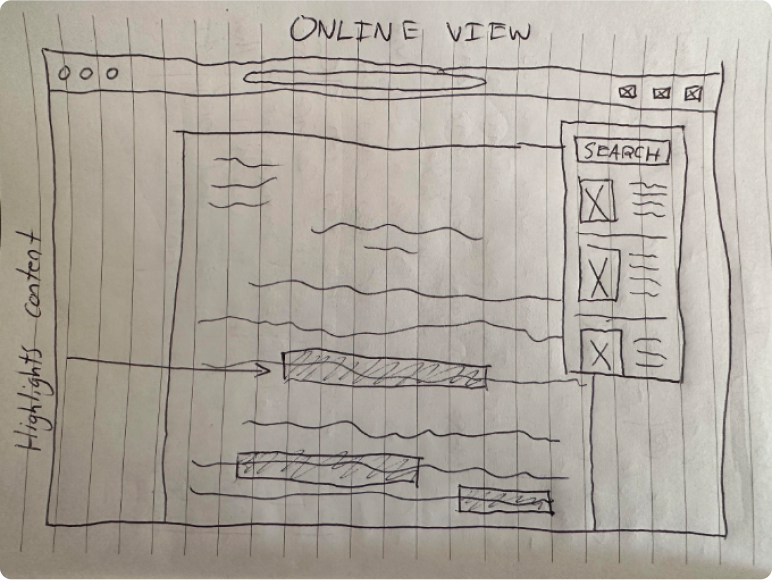 ONLINE VIEW
SEARCH
Highlights content